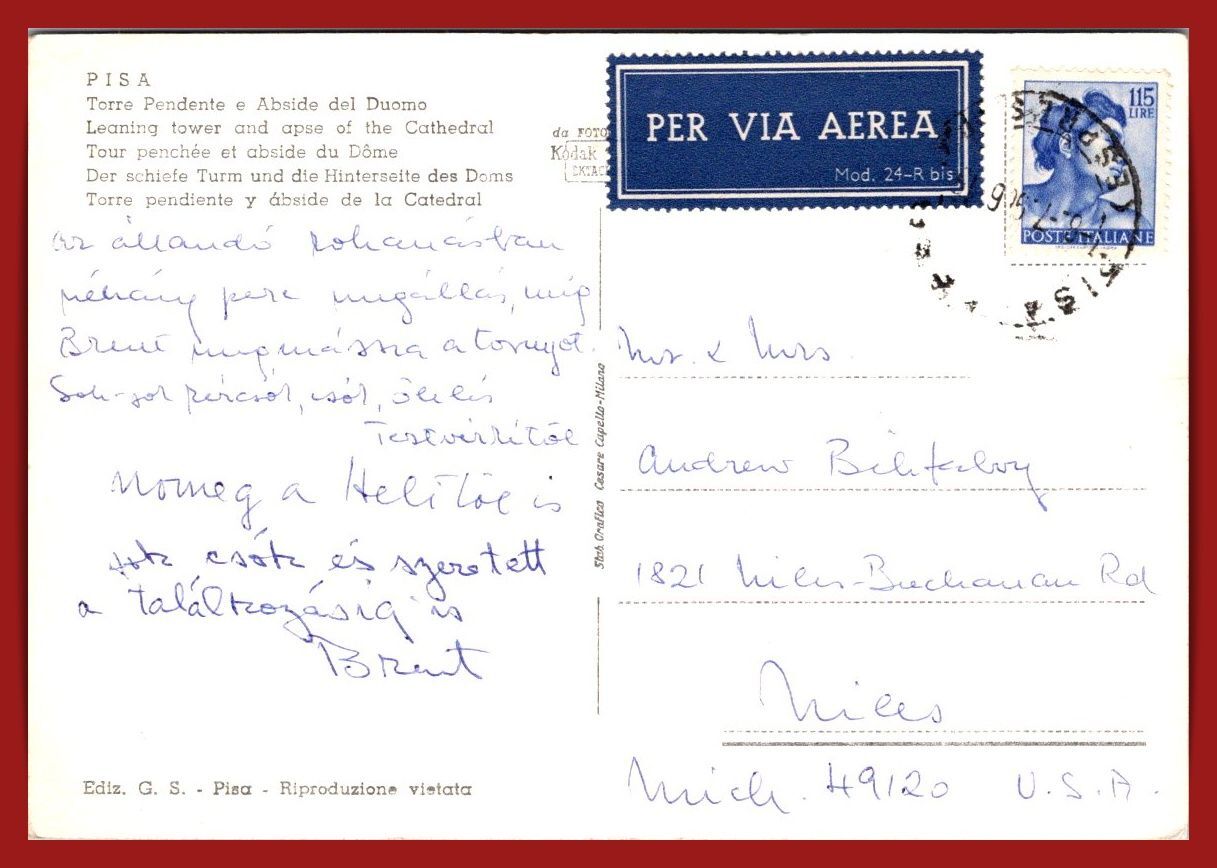 PISA
Torre Pendente e Abside del Duomo
Leaning tower and apse of the Cathedral
Tour penchée et abside du Dôme
Der schiefe Turm und die Hinterseite des Doms
Torre pendiente y ábside de la Catedral
da FOTO
Kodak
EKTAC
PER VIA AEREA
Mod. 24-R bis
115
LIRE
POSTE ITALIANE
PISA
az állandó rohanásban
néhány perc megállás, míg
Brent megmássza a tornyot.
Sok-sok csók, ölelés
Nomeg a Helitöl is
sok csók és szeretett
a találkozásig is
Brent
Stab. Grafico Cesare Capello-Milano
Mr. & Mrs.
Andrew
1821 Niles-Buchanan Rd
Niles
Mich. 49120 U.S.A.
Ediz. G. S. - Pisa - Riproduzione vietata